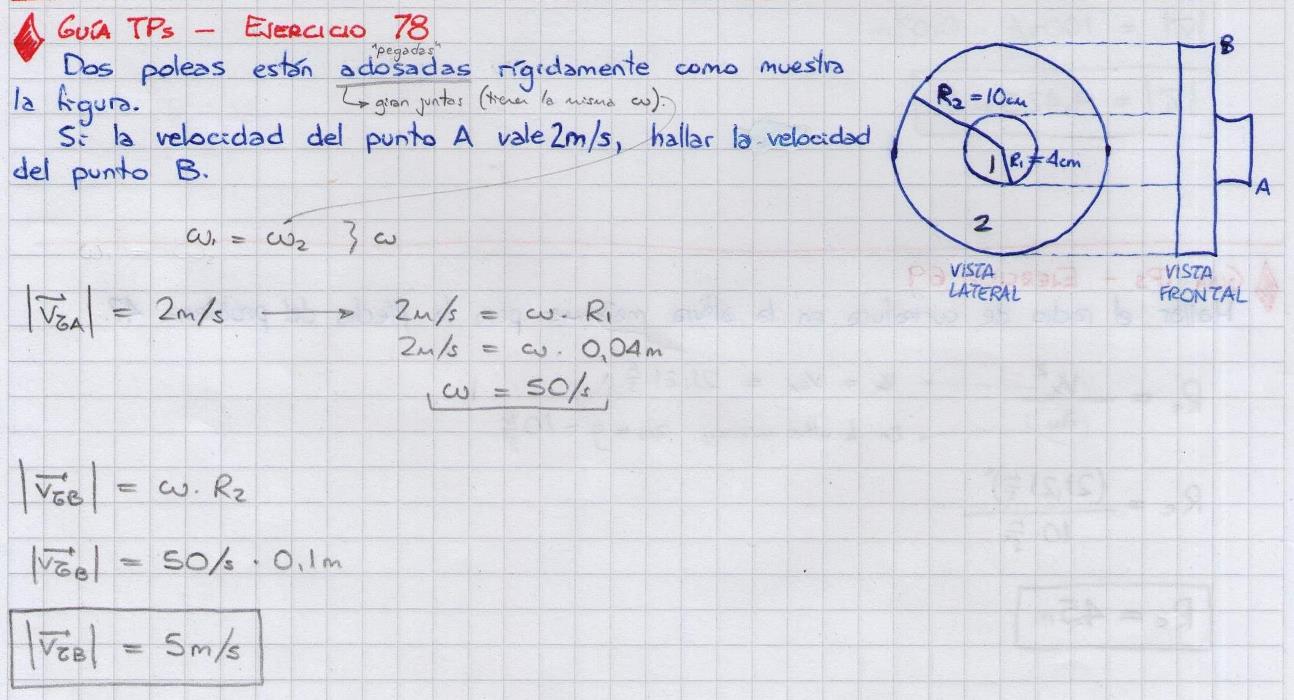 GUÍA TPs – EJERCICIO 78
"pegadas"
Dos poleas están adosadas rígidamente como muestra
la figura.
↳ giran juntas (tienen la misma ω).
Si la velocidad del punto A vale 2m/s, hallar la velocidad
del punto B.
R₂ = 10cm
1
R₁ = 4cm
2
B
A
VISTA
LATERAL
VISTA
FRONTAL
ω₁ = ω₂ } ω
|v⃗τA| = 2m/s → 2m/s = ω · R₁
2m/s = ω · 0,04m
ω = 50/s
|v⃗τB| = ω · R₂
|v⃗τB| = 50/s · 0,1m
|v⃗τB| = 5m/s